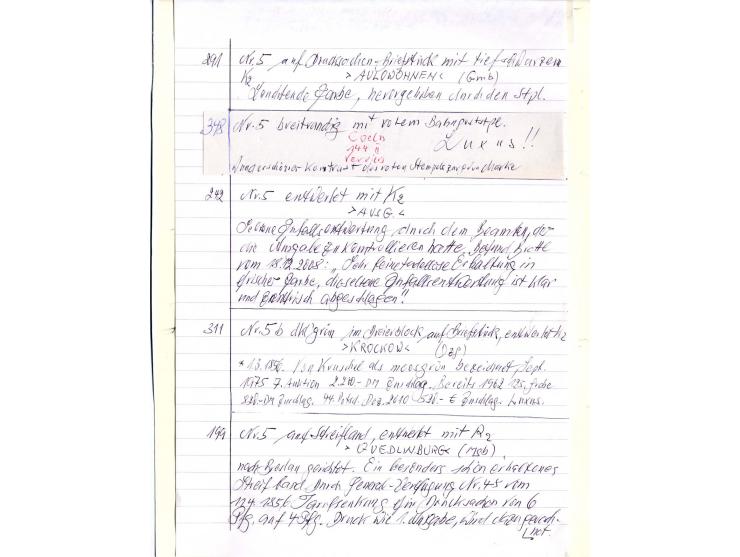 291 Nr. 5 auf Drucksachen-Briefstück mit tiefschwarzem
K2 >AULOWÖHNEN< (Gmb)
Farbe, hervorgehoben durch den Stpl.
348 Nr. 5 breitrandig mit rotem Bahnpostpl.
Coeln
Luxus!!
144 II
Verviers
Kontrast des roten Stempels zur Marke
242 Nr. 5 entwertet mit K2
>AUSG.<
Seltene Entwertung durch den Beamten, der
die Ausgabe zu kontrollieren hatte, Befund Brettl
vom 18.12.2008: "Sehr feine tadellose Erhaltung in
frischer Farbe, die seltene Entwertung ist klar
und zentrisch abgeschlagen".
311 Nr. 5b dklgrün im Dreierblock auf Briefstück, entwertet K2
>KROCKOW<
* 1.3.1856. Von Kruschel als moosgrün bezeichnet Sept.
1975 7. Auktion 2.210.- DM Zuschlag. Bereits 1962 125. Grobe
DM Zuschlag. 44. Potsd. Dez. 2010 520.- € Zuschlag. Luxus.
199 Nr. 5 auf Streifband, entwertet mit R2
>QUEDLINBURG< (Mgb),
nach gerichtet. Ein besonders schön erhaltenes
Streifband. Durch General-Verfügung Nr. 45 vom
12.4.1856 Tarifsenkung für Drucksachen von 6
Pfg. auf 4 Pfg. Druck wie 1. Ausgabe, wird dazu gerech-
net.